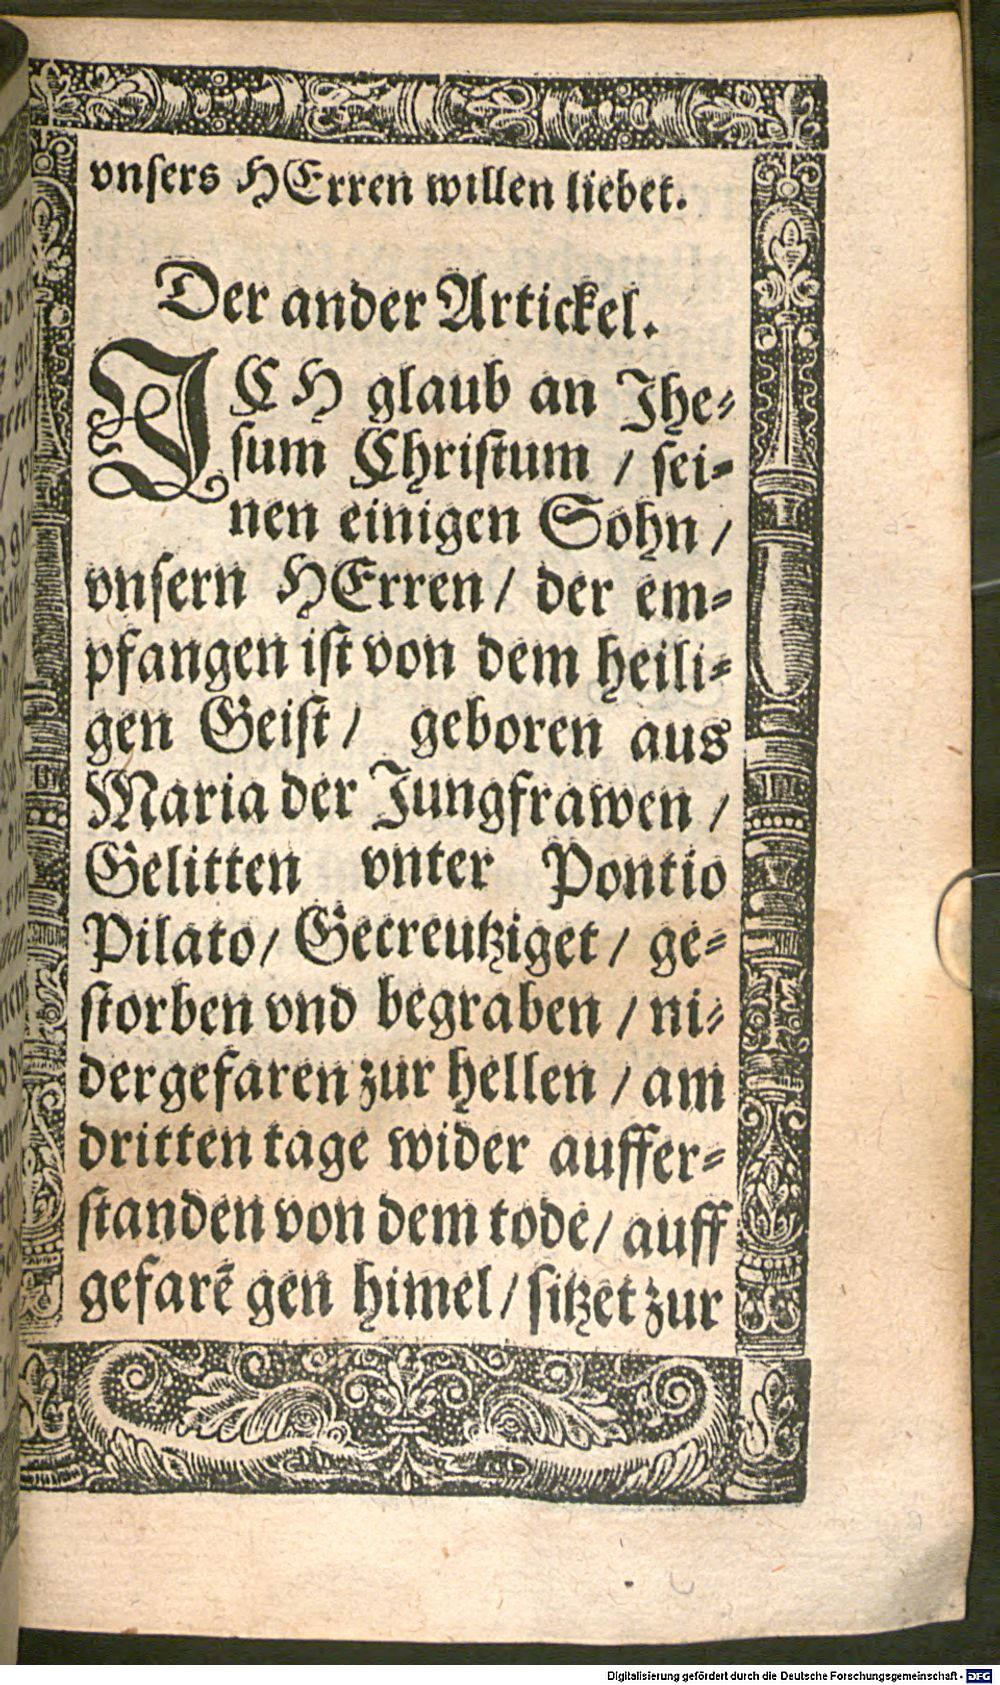 vnsers HErren willen liebet.
Der ander Artickel.
ICH glaub an Jhe⸗
sum Christum / sei⸗
nen einigen Sohn /
vnsern HErren / der em⸗
pfangen ist von dem heili⸗
gen Geist / geboren aus
Maria der Jungfrawen /
Gelitten vnter Pontio
Pilato / Gecreutziget / ge⸗
storben vnd begraben / ni⸗
dergefaren zur hellen / am
dritten tage wider auffer⸗
standen von dem tode / auff
gefarē gen himel / sitzet zur
Digitalisierung gefördert durch die Deutsche Forschungsgemeinschaft - DFG